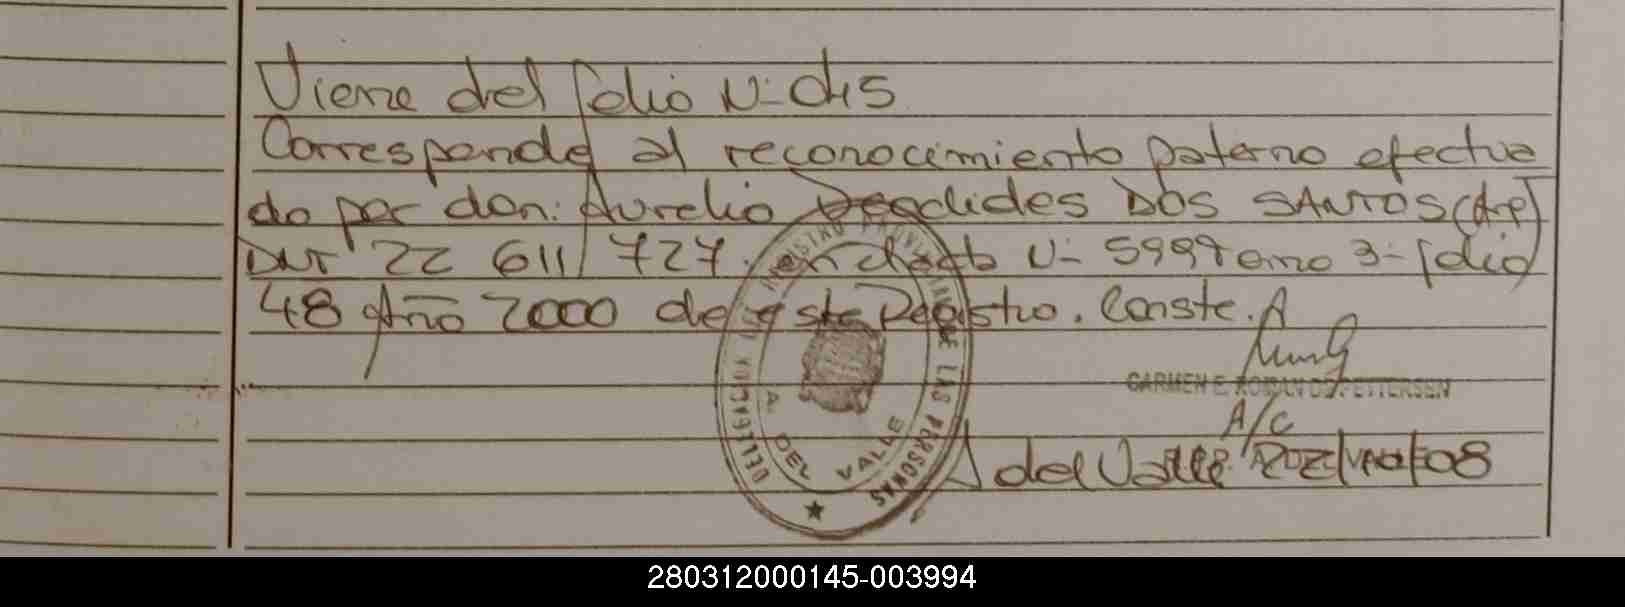 Viene del folio Nº 045
Corresponde al reconocimiento paterno efectua
do por don: Aurelio DOS SANTOS
DNI 22 611 727. en Acta Nº 599 Tomo 3º folio
48 Año 2000 de este Registro. Conste.
CARMEN E. ROMAN DE PETTERSEN
A/C
A del Valle 08
DELEGACION REGISTRO PROVINCIAL DE LAS PERSONAS
A. DEL VALLE
280312000145-003994